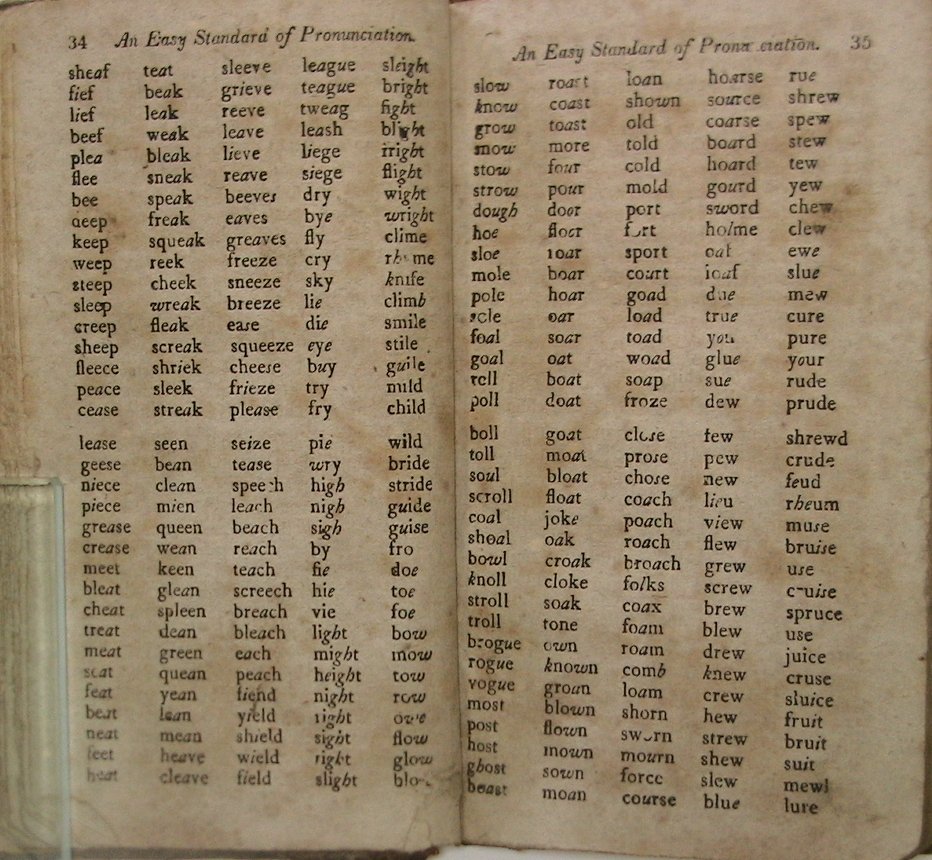 34 An Easy Standard of Pronunciation.
sheaf teat sleeve league sleight
fief beak grieve teague bright
lief leak reeve tweag fight
beef weak leave leash blight
plea bleak lieve liege
flee sneak reave siege flight
bee speak beeves dry wight
freak eaves bye wright
keep squeak greaves fly clime
weep reek freeze cry
steep cheek sneeze sky knife
sleep wreak breeze lie climb
creep fleak ease die smile
sheep screak squeeze eye stile
fleece shriek cheese buy guile
peace sleek frieze try mild
cease streak please fry child
lease seen seize pie wild
geese bean tease wry bride
niece clean speech high stride
piece mien leach nigh guide
grease queen beach sigh guise
crease wean reach by fro
meet keen teach fie doe
bleat glean screech hie toe
cheat spleen breach vie foe
treat dean bleach light bow
meat green each might mow
seat quean peach height tow
feat yean fiend night row
beat lean yield right owe
neat mean shield sight flow
feet heave wield right glow
heat cleave field slight
An Easy Standard of Pronunciation. 35
slow roast loan hoarse rue
know coast shown source shrew
grow toast old coarse spew
mow more told board stew
stow four cold hoard tew
strow pour mold gourd yew
dough door port sword chew
hoe floor fort holme clew
sloe roar sport oaf ewe
mole boar court loaf slue
pole hoar goad due mew
sole oar load true cure
foal soar toad you pure
goal oat woad glue your
roll boat soap sue rude
poll doat froze dew prude
boll goat close few shrewd
toll moat prose pew crude
soul bloat chose new feud
scroll float coach lieu rheum
coal joke poach view muse
shoal oak roach flew bruise
bowl croak broach grew use
knoll cloke folks screw cruise
stroll soak coax brew spruce
troll tone foam blew use
brogue own roam drew juice
rogue known comb knew cruse
vogue groan loam crew sluice
most blown shorn hew fruit
post flown sworn strew bruit
host mown mourn shew suit
ghost sown force slew mewl
beast moan course blue lure